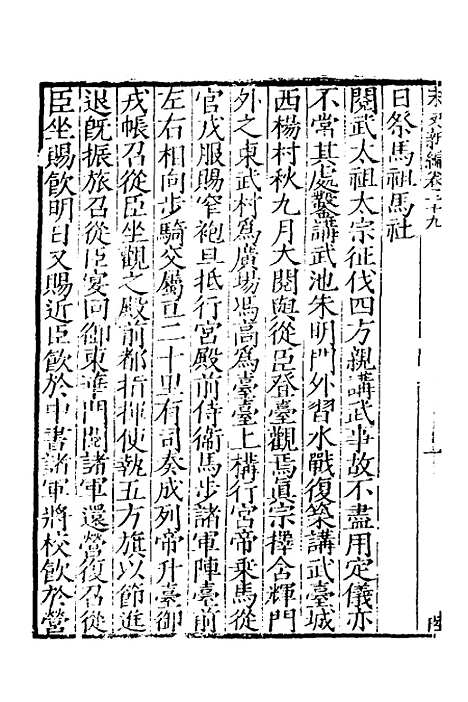 宋史新編卷二十九
日祭馬祖馬社
閱武太祖太宗征伐四方親講武事故不盡用定儀亦
不常其處鑿講武池朱明門外習水戰復築講武臺城
西楊村秋九月大閱與從臣登臺觀焉真宗擇含輝門
外之東武村爲廣場馮高爲臺臺上構行宮帝乘馬從
官戎服賜窄袍旦抵行宮殿前侍衛馬步諸軍陣臺前
左右相向步騎交屬亘二十里有司奏成列帝升臺御
戎帳召從臣坐觀之殿前都指揮使執五方旗以節進
退旣振旅召從臣宴回御東華門閱諸軍還營復召從
臣坐賜飲明日又賜近臣飲於中書諸軍將校飲於營